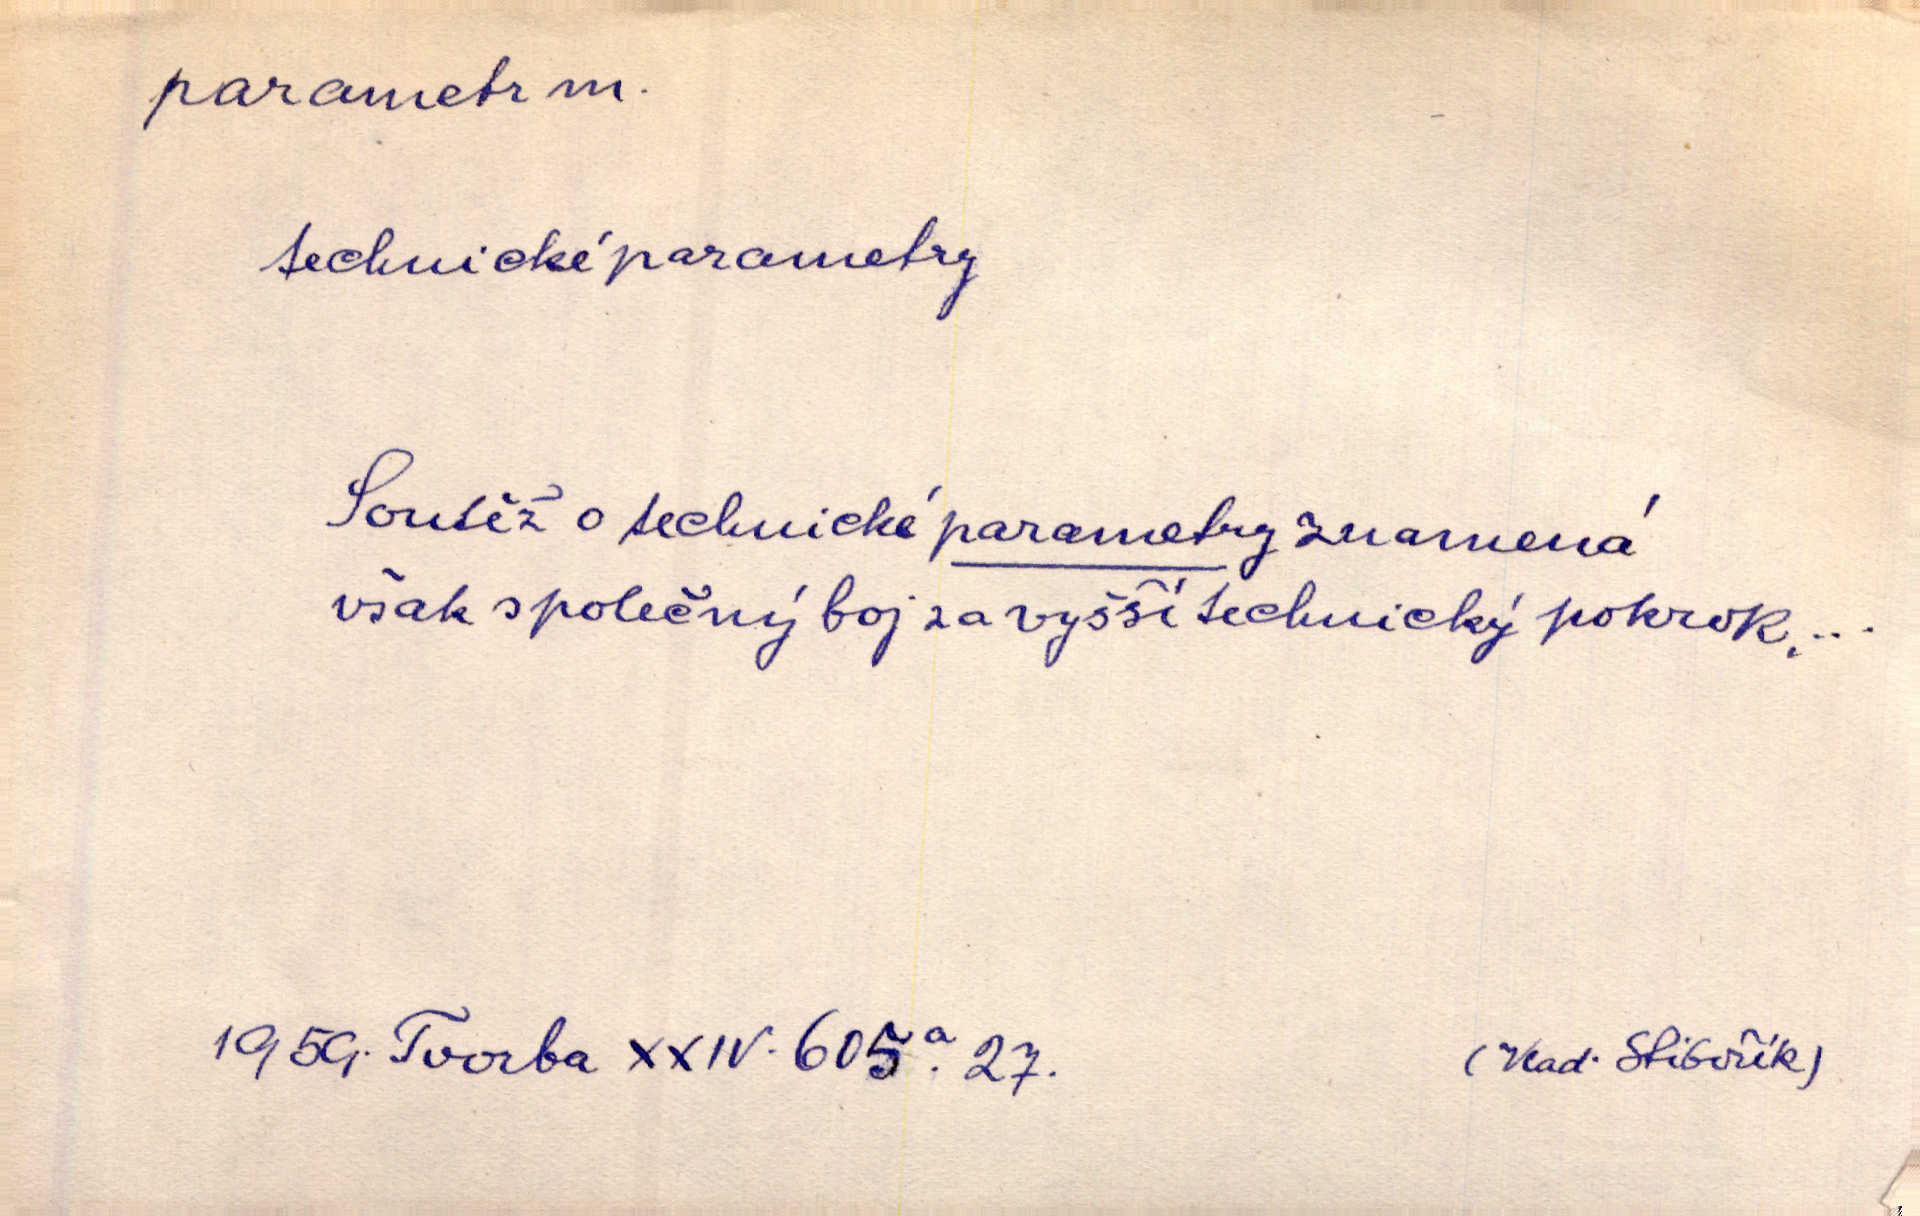 parametr m.
technické parametry
Soutěž o technické parametry znamená
však společný boj za vyšší technický pokrok, ...
1959. Tvorba XXIV. 605a. 27.
(Vlad. Stibořík)